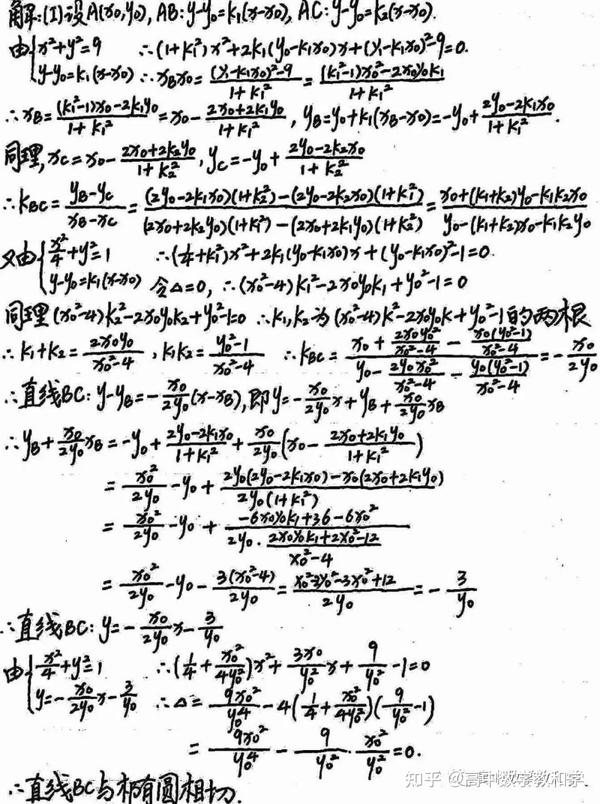 解:(I)设A(x₀,y₀), AB: y-y₀=k₁(x-x₀), AC: y-y₀=k₂(x-x₀).
由{x²+y²=9 ∴(1+k₁²)x²+2k₁(y₀-k₁x₀)x+(y₀-k₁x₀)²-9=0.
y-y₀=k₁(x-x₀) ∴x_Bx₀=\frac{(y₀-k₁x₀)²-9}{1+k₁²}=\frac{(k₁²-1)x₀²-2x₀y₀k₁}{1+k₁²}
∴x_B=\frac{(k₁²-1)x₀-2k₁y₀}{1+k₁²}=x₀-\frac{2x₀+2k₁y₀}{1+k₁²}, y_B=y₀+k₁(x_B-x₀)=-y₀+\frac{2y₀-2k₁x₀}{1+k₁²}.
同理, x_C=x₀-\frac{2x₀+2k₂y₀}{1+k₂²}, y_C=-y₀+\frac{2y₀-2k₂x₀}{1+k₂²}
∴k_BC=\frac{y_B-y_C}{x_B-x_C}=\frac{(2y₀-2k₁x₀)(1+k₂²)-(2y₀-2k₂x₀)(1+k₁²)}{(2x₀+2k₂y₀)(1+k₁²)-(2x₀+2k₁y₀)(1+k₂²)}=\frac{x₀+(k₁+k₂)y₀-k₁k₂x₀}{y₀-(k₁+k₂)x₀-k₁k₂y₀}
又由{\frac{x²}{4}+y²=1 ∴(\frac{1}{4}+k₁²)x²+2k₁(y₀-k₁x₀)x+(y₀-k₁x₀)²-1=0.
y-y₀=k₁(x-x₀) 令△=0, ∴(x₀²-4)k₁²-2x₀y₀k₁+y₀²-1=0
同理(x₀²-4)k₂²-2x₀y₀k₂+y₀²-1=0 ∴k₁,k₂为(x₀²-4)k²-2x₀y₀k+y₀²-1的两根
∴k₁+k₂=\frac{2x₀y₀}{x₀²-4}, k₁k₂=\frac{y₀²-1}{x₀²-4} ∴k_BC=\frac{x₀+\frac{2x₀y₀²}{x₀²-4}-\frac{x₀(y₀²-1)}{x₀²-4}}{y₀-\frac{2y₀x₀²}{x₀²-4}-\frac{y₀(y₀²-1)}{x₀²-4}}=-\frac{x₀}{2y₀}
∴直线BC: y-y_B=-\frac{x₀}{2y₀}(x-x_B),即y=-\frac{x₀}{2y₀}x+y_B+\frac{x₀}{2y₀}x_B
∴y_B+\frac{x₀}{2y₀}x_B=-y₀+\frac{2y₀-2k₁x₀}{1+k₁²}+\frac{x₀}{2y₀}(x₀-\frac{2x₀+2k₁y₀}{1+k₁²})
=\frac{x₀²}{2y₀}-y₀+\frac{2y₀(2y₀-2k₁x₀)-x₀(2x₀+2k₁y₀)}{2y₀(1+k₁²)}
=\frac{x₀²}{2y₀}-y₀+\frac{-6x₀y₀k₁+36-6x₀²}{2y₀·\frac{2x₀y₀k₁+2x₀²-12}{x₀²-4}}
=\frac{x₀²}{2y₀}-y₀-\frac{3(x₀²-4)}{2y₀}=\frac{x₀²-2y₀²-3x₀²+12}{2y₀}=-\frac{3}{y₀}
∴直线BC: y=-\frac{x₀}{2y₀}x-\frac{3}{y₀}
由{\frac{x²}{4}+y²=1 ∴(\frac{1}{4}+\frac{x₀²}{4y₀²})x²+\frac{3x₀}{y₀²}x+\frac{9}{y₀²}-1=0
y=-\frac{x₀}{2y₀}x-\frac{3}{y₀} ∴△=\frac{9x₀²}{y₀⁴}-4(\frac{1}{4}+\frac{x₀²}{4y₀²})(\frac{9}{y₀²}-1)
=\frac{9x₀²}{y₀⁴}-\frac{9}{y₀²}·\frac{x₀²}{y₀²}=0.
∴直线BC与椭圆相切.
知乎 @高中数学教和学